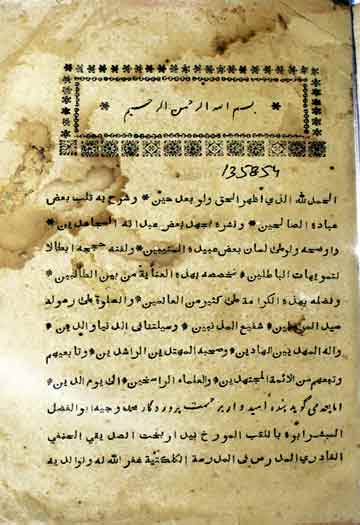 بسم الله الرحمن الرحيم
135854
الحمد لله الذي اظهر الحق ولو بعد حين * وشرح به قلب بعض
عباده الصالحين * ونفره بجهل بعض عبدانه المجاهدين *
واوضحه ولوعلى لسان بعض عبيده المتبعين * ولقنه حججه ابطالا
لتمويهات الباطلين * خصصه بهذه العناية من بين الطالبين *
وفضله بهذه الكرامة على كثير من العالمين * والصلوة على رسوله
سيد المرسلين * شفيع المذنبين * وسيلتنا في الدنيا والدين *
واله المهديين الهادين * وصحبه المهتدين الراشدين * وتابعيهم
وتبعهم من الائمة المجتهدين * والعلماء الراسخين * الى يوم الدين *
اما بعد می گوید بنده امیدوار برحمت پروردگار محمد وجیه ابو الفضل
باللقب المورخ بيدار بخت الصديقي الحنفي
القادري المدرس في المدرسة الكلكتية غفر الله له ولوالديه